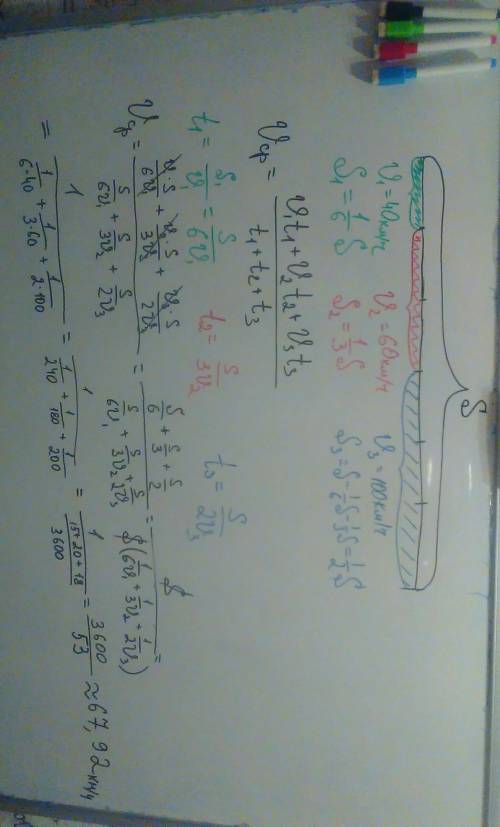 S
V₁=40км/ч V₂=60км/ч V₃=100км/ч
S₁=1/6 S S₂=1/3 S S₃=S-1/6 S-1/3 S=1/2 S
Vср = (V₁t₁+V₂t₂+V₃t₃)/(t₁+t₂+t₃)
t₁=S₁/V₁=S/6V₁ t₂=S/3V₂ t₃=S/2V₃
Vср = (V₁·S/6V₁ + V₂·S/3V₂ + V₃·S/2V₃)/(S/6V₁ + S/3V₂ + S/2V₃) = (S/6 + S/3 + S/2)/(S/6V₁ + S/3V₂ + S/2V₃) = S/(S(1/6V₁ + 1/3V₂ + 1/2V₃)) =
= 1/(1/6·40 + 1/3·60 + 1/2·100) = 1/(1/240 + 1/180 + 1/200) = 1/((15+20+18)/3600) = 3600/53 ≈ 67,92 км/ч